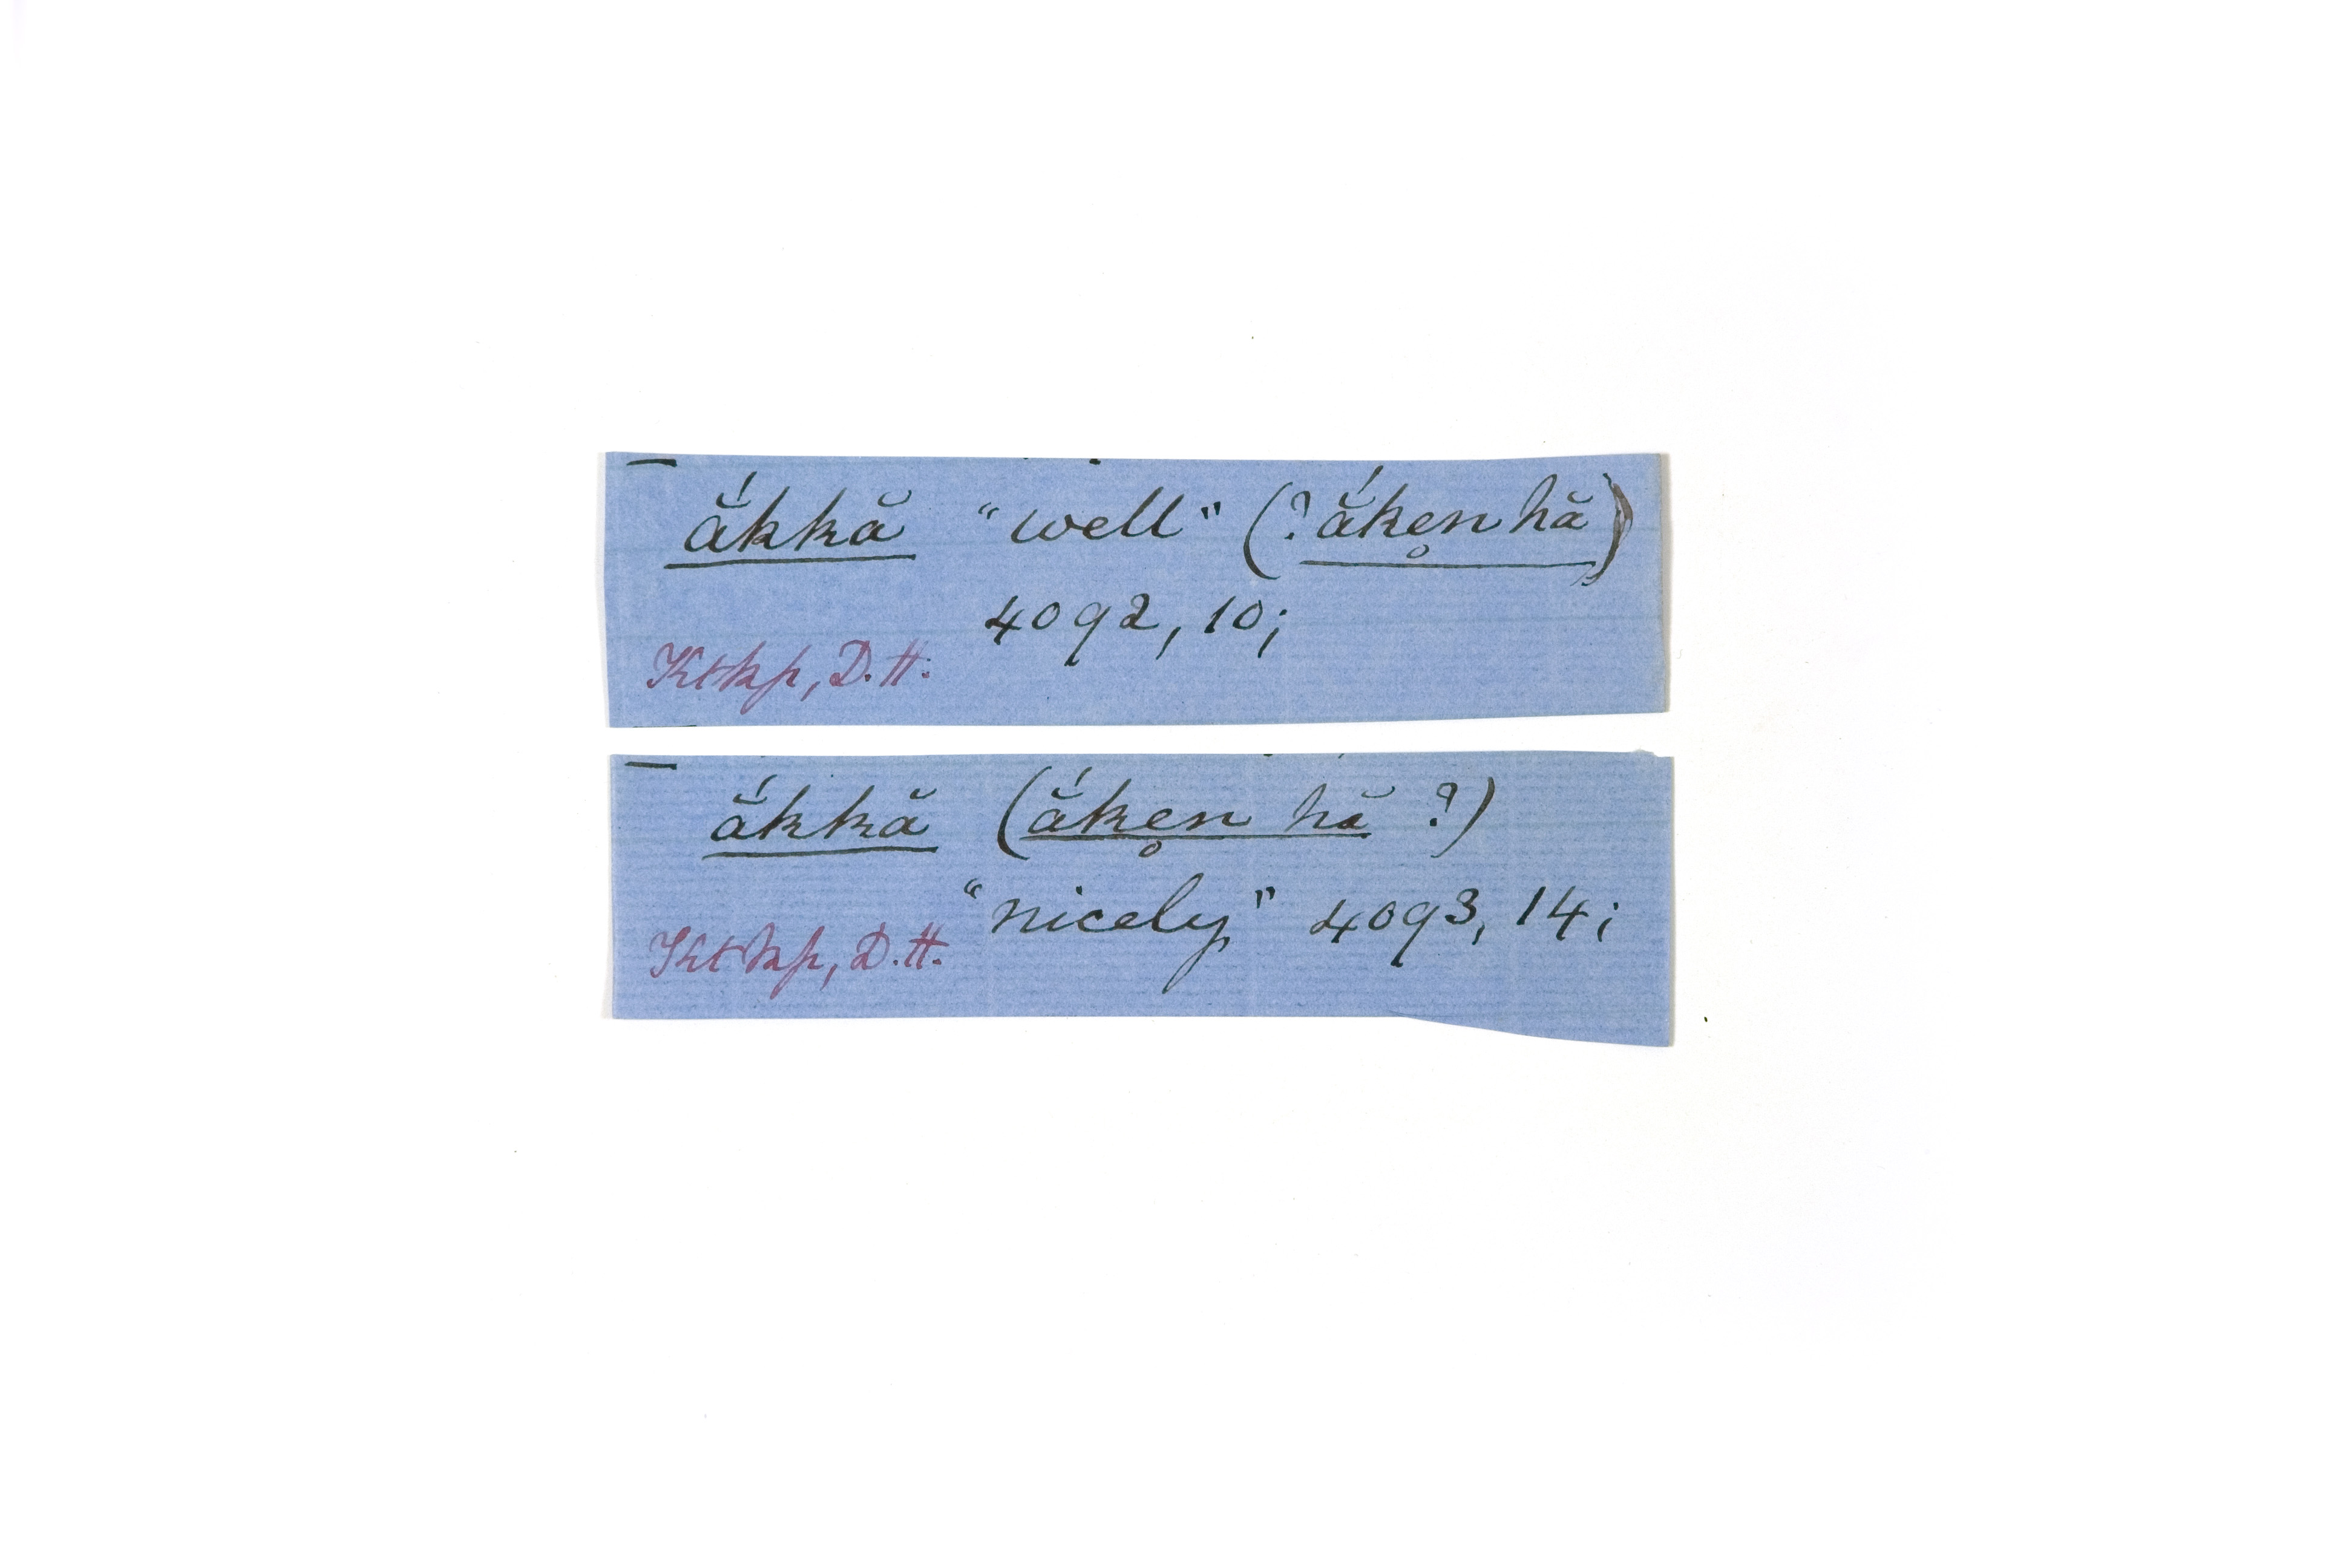 ắkkă "well" (? ắke̥n hă)
4092, 10;
Ktkp, D.H.
ắkkă (ắke̥n hă ?)
"nicely" 4093, 14;
Ktkp, D.H.